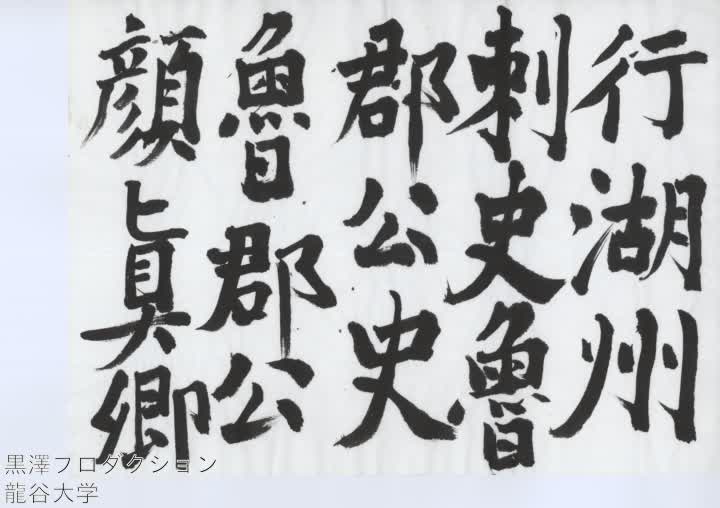 行湖州
刺史魯
郡公史
魯郡公
顔眞卿
黒澤フロダクション
龍谷大学